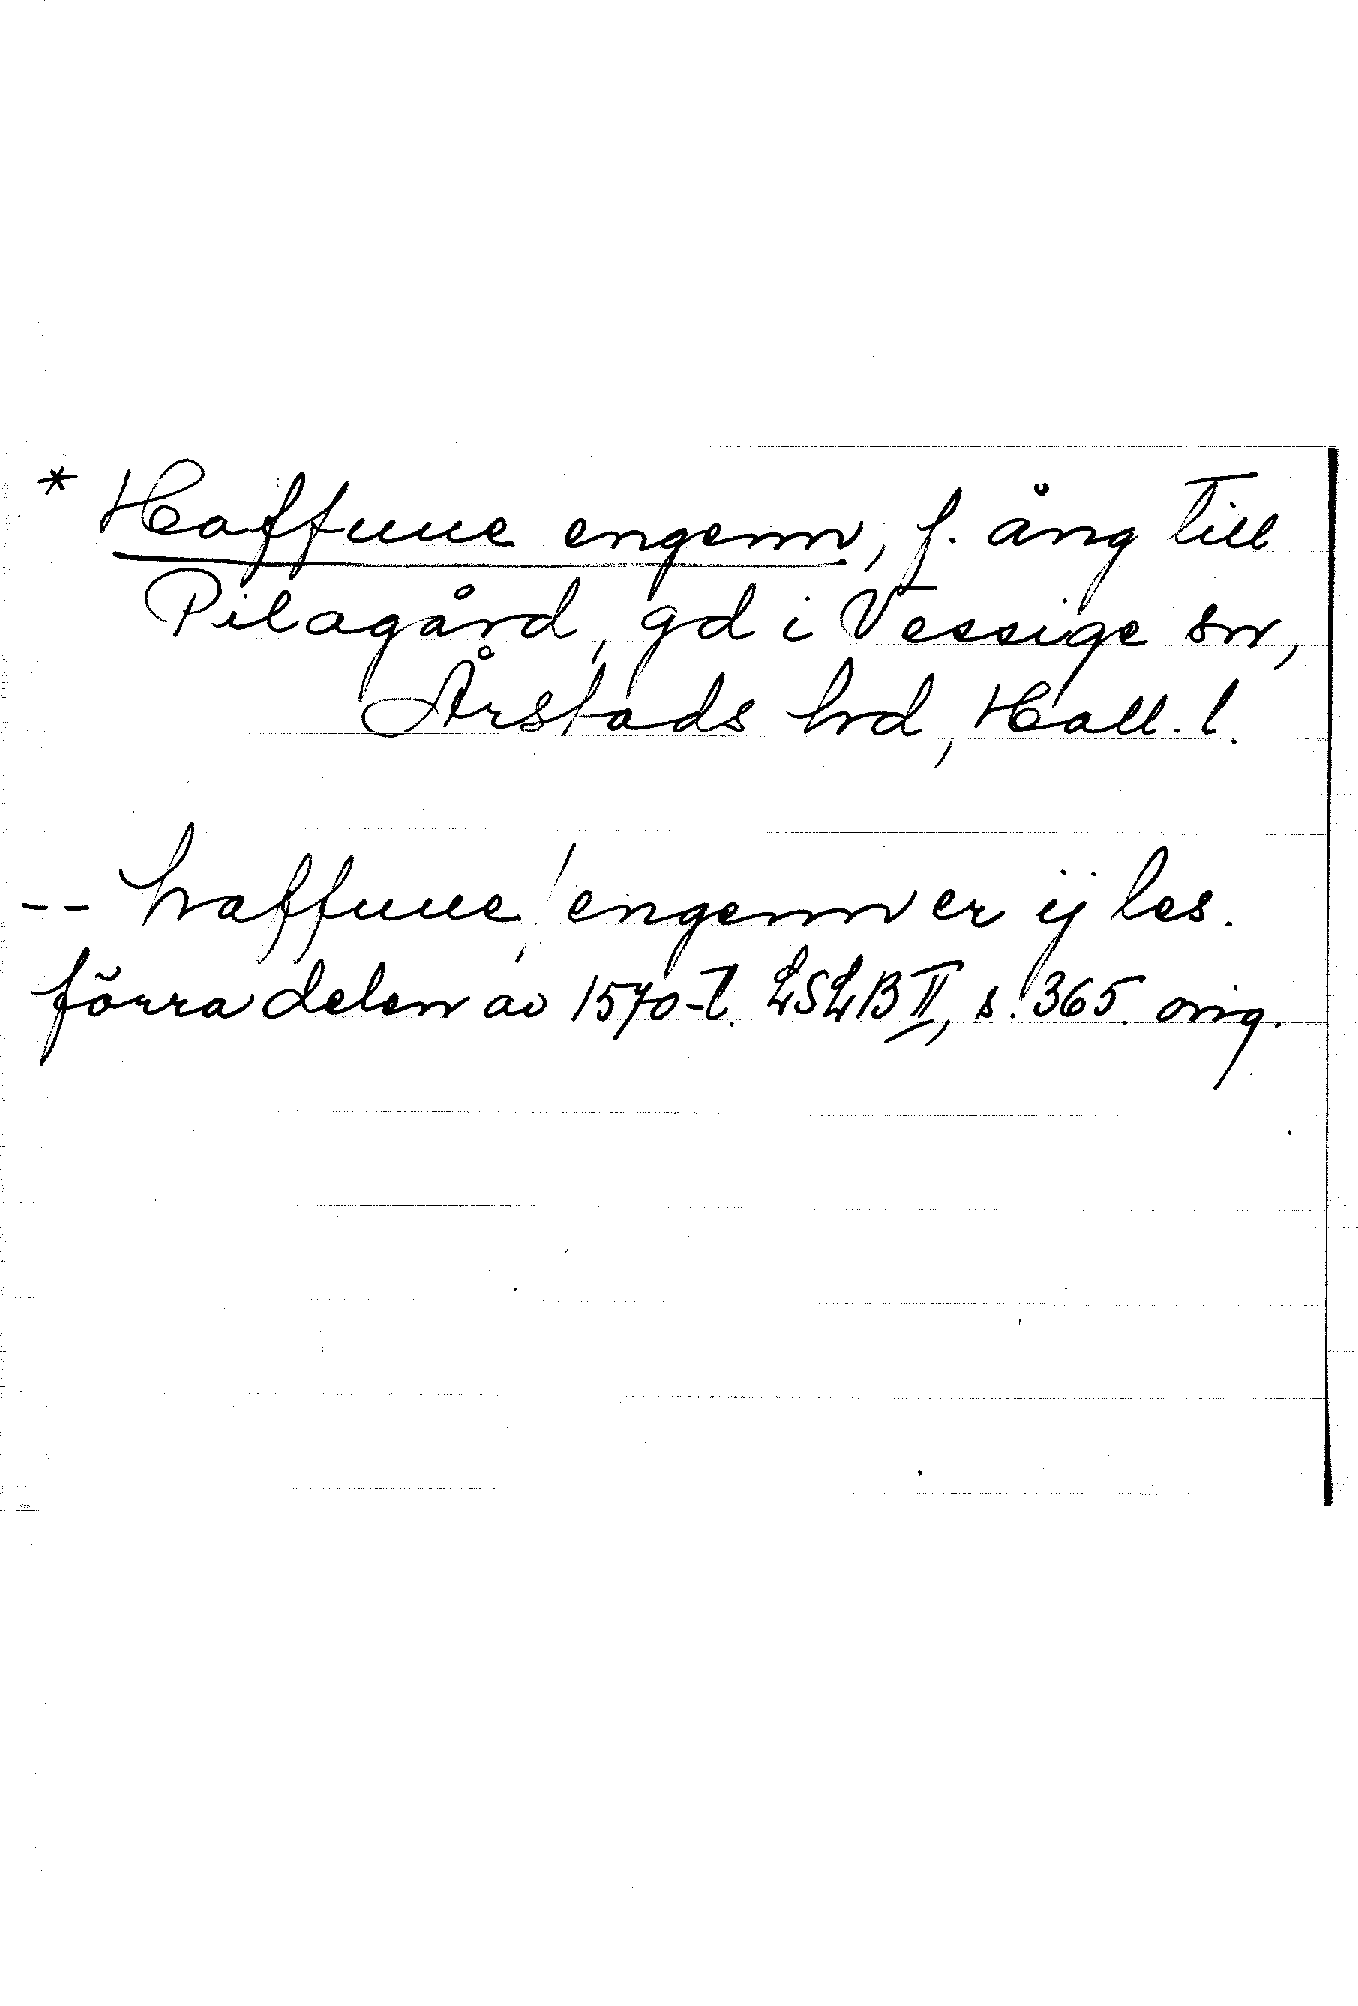 * Haffuue engenn, f. äng till
Pilagård, gd i Vessige sn,
Årstads hrd, Hall. l.
-- haffuue / engenn er ij les.
förra delen av 1570-t. LSLB II, s. 365. orig.